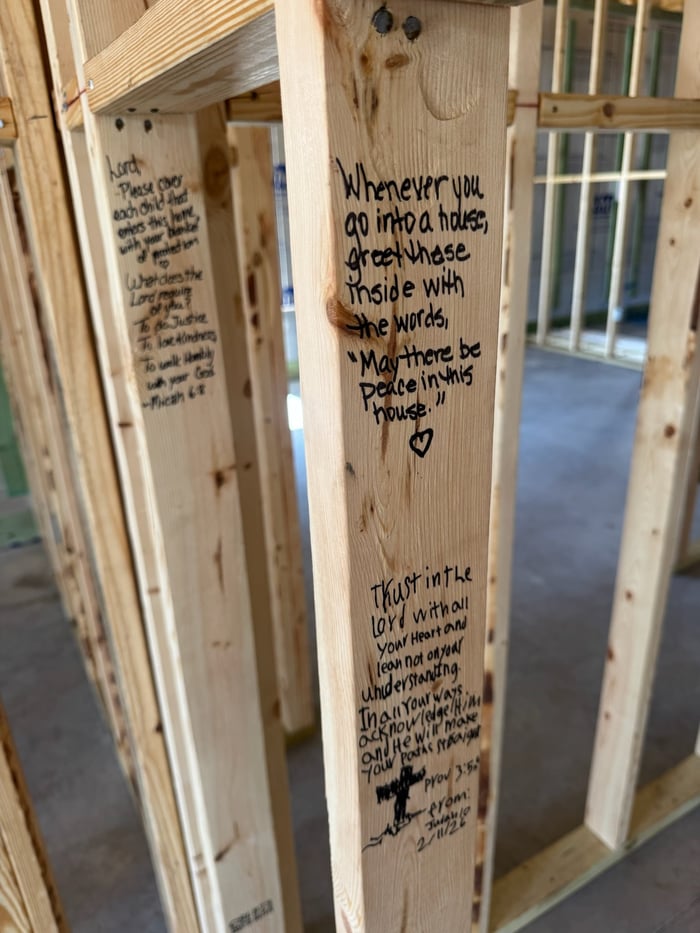 Lord,
Please cover
each child that
enters this home
with your blanket
of protection
What does the
Lord require
of you?
To do Justice
To love Kindness,
To walk Humbly
with your God
~Micah 6:8
Whenever you
go into a house,
greet those
inside with
the words,
"May there be
peace in this
house."
Trust in the
Lord with all
your Heart and
lean not on your
understanding.
In all your ways
acknowledge Him
and He will make
your paths straight
Prov 3:5
From:
2/11/26